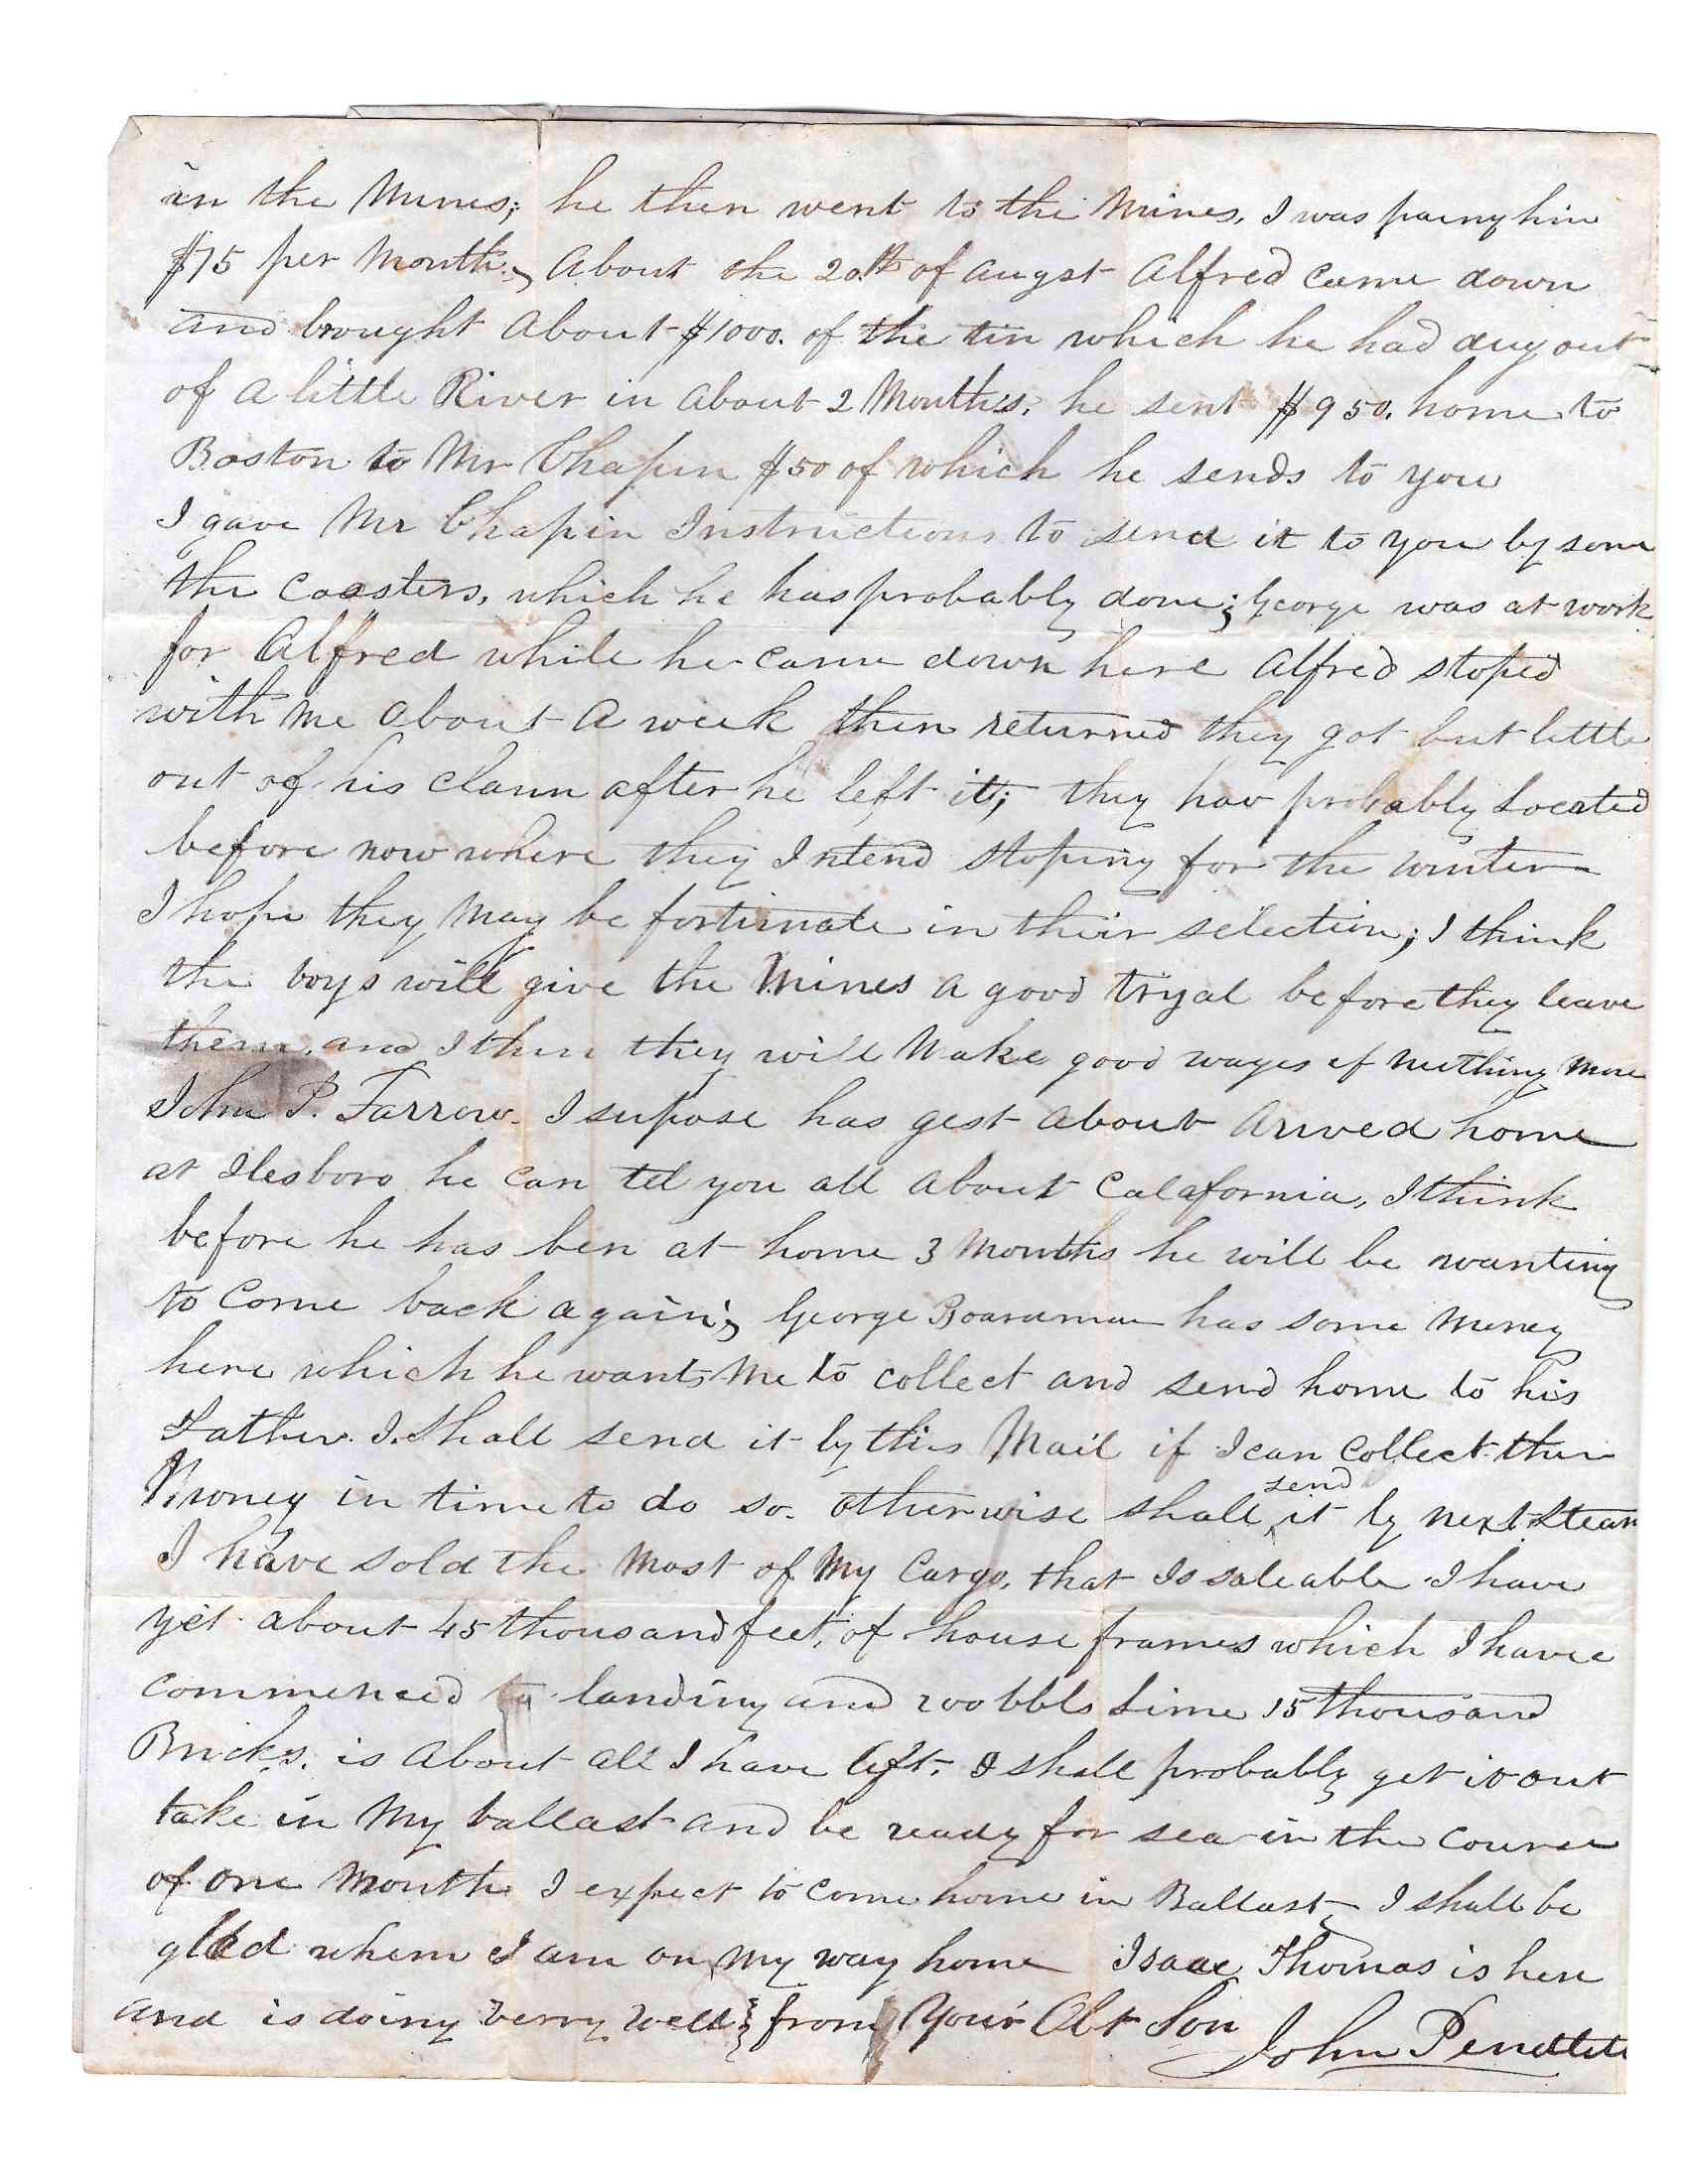 in the Mines; he then went to the Mines, I was paing him
$75 per Month., About the 20th of Augst Alfred came down
and brought About $1000. of the tin which he had dug out
of a little River in About 2 Months. he sent $950. home to
Boston to Mr Chapin $50 of which he sends to you
I gave Mr Chapin Instructions to send it to you by some
the Coasters, which he has probably done; George was at work
for Alfred while he came down here Alfred stoped
with Me About A week then returned they got but little
out of his claim after he left it; they hav probably Located
before now where they Intend stoping for the winter
I hope they May be fortunate in their selection; I think
the boys will give the Mines A good tryal before they leave
them. and I think they will Make good wages if nuthing More
John P. Farrow. I supose has gest About Arived home
at Ilesboro he can tel you all About Calafornia, I think
before he has ben at home 3 Months he will be wanting
to Come back again; George Boardman has some Money
here which he wants Me to collect and send home to his
Father. I Shall send it by this Mail if I can Collect the
Money in time to do so. otherwise shall send it by next Steam
I have sold the Most of My Cargo, that Is saleable I have
yet about 45 thousand feet, of house frames which I have
commenced landing and 200 bbls Lime 15 thousand
Bricks. is About all I have left. I shall probably get it out
take in My ballast and be ready for sea in the Course
of one Month I expect to Come home in Ballast, I shall be
glad when I am on My way home Isaac Thomas is here
and is doing verry well; from Your Obt Son
John Pendlet